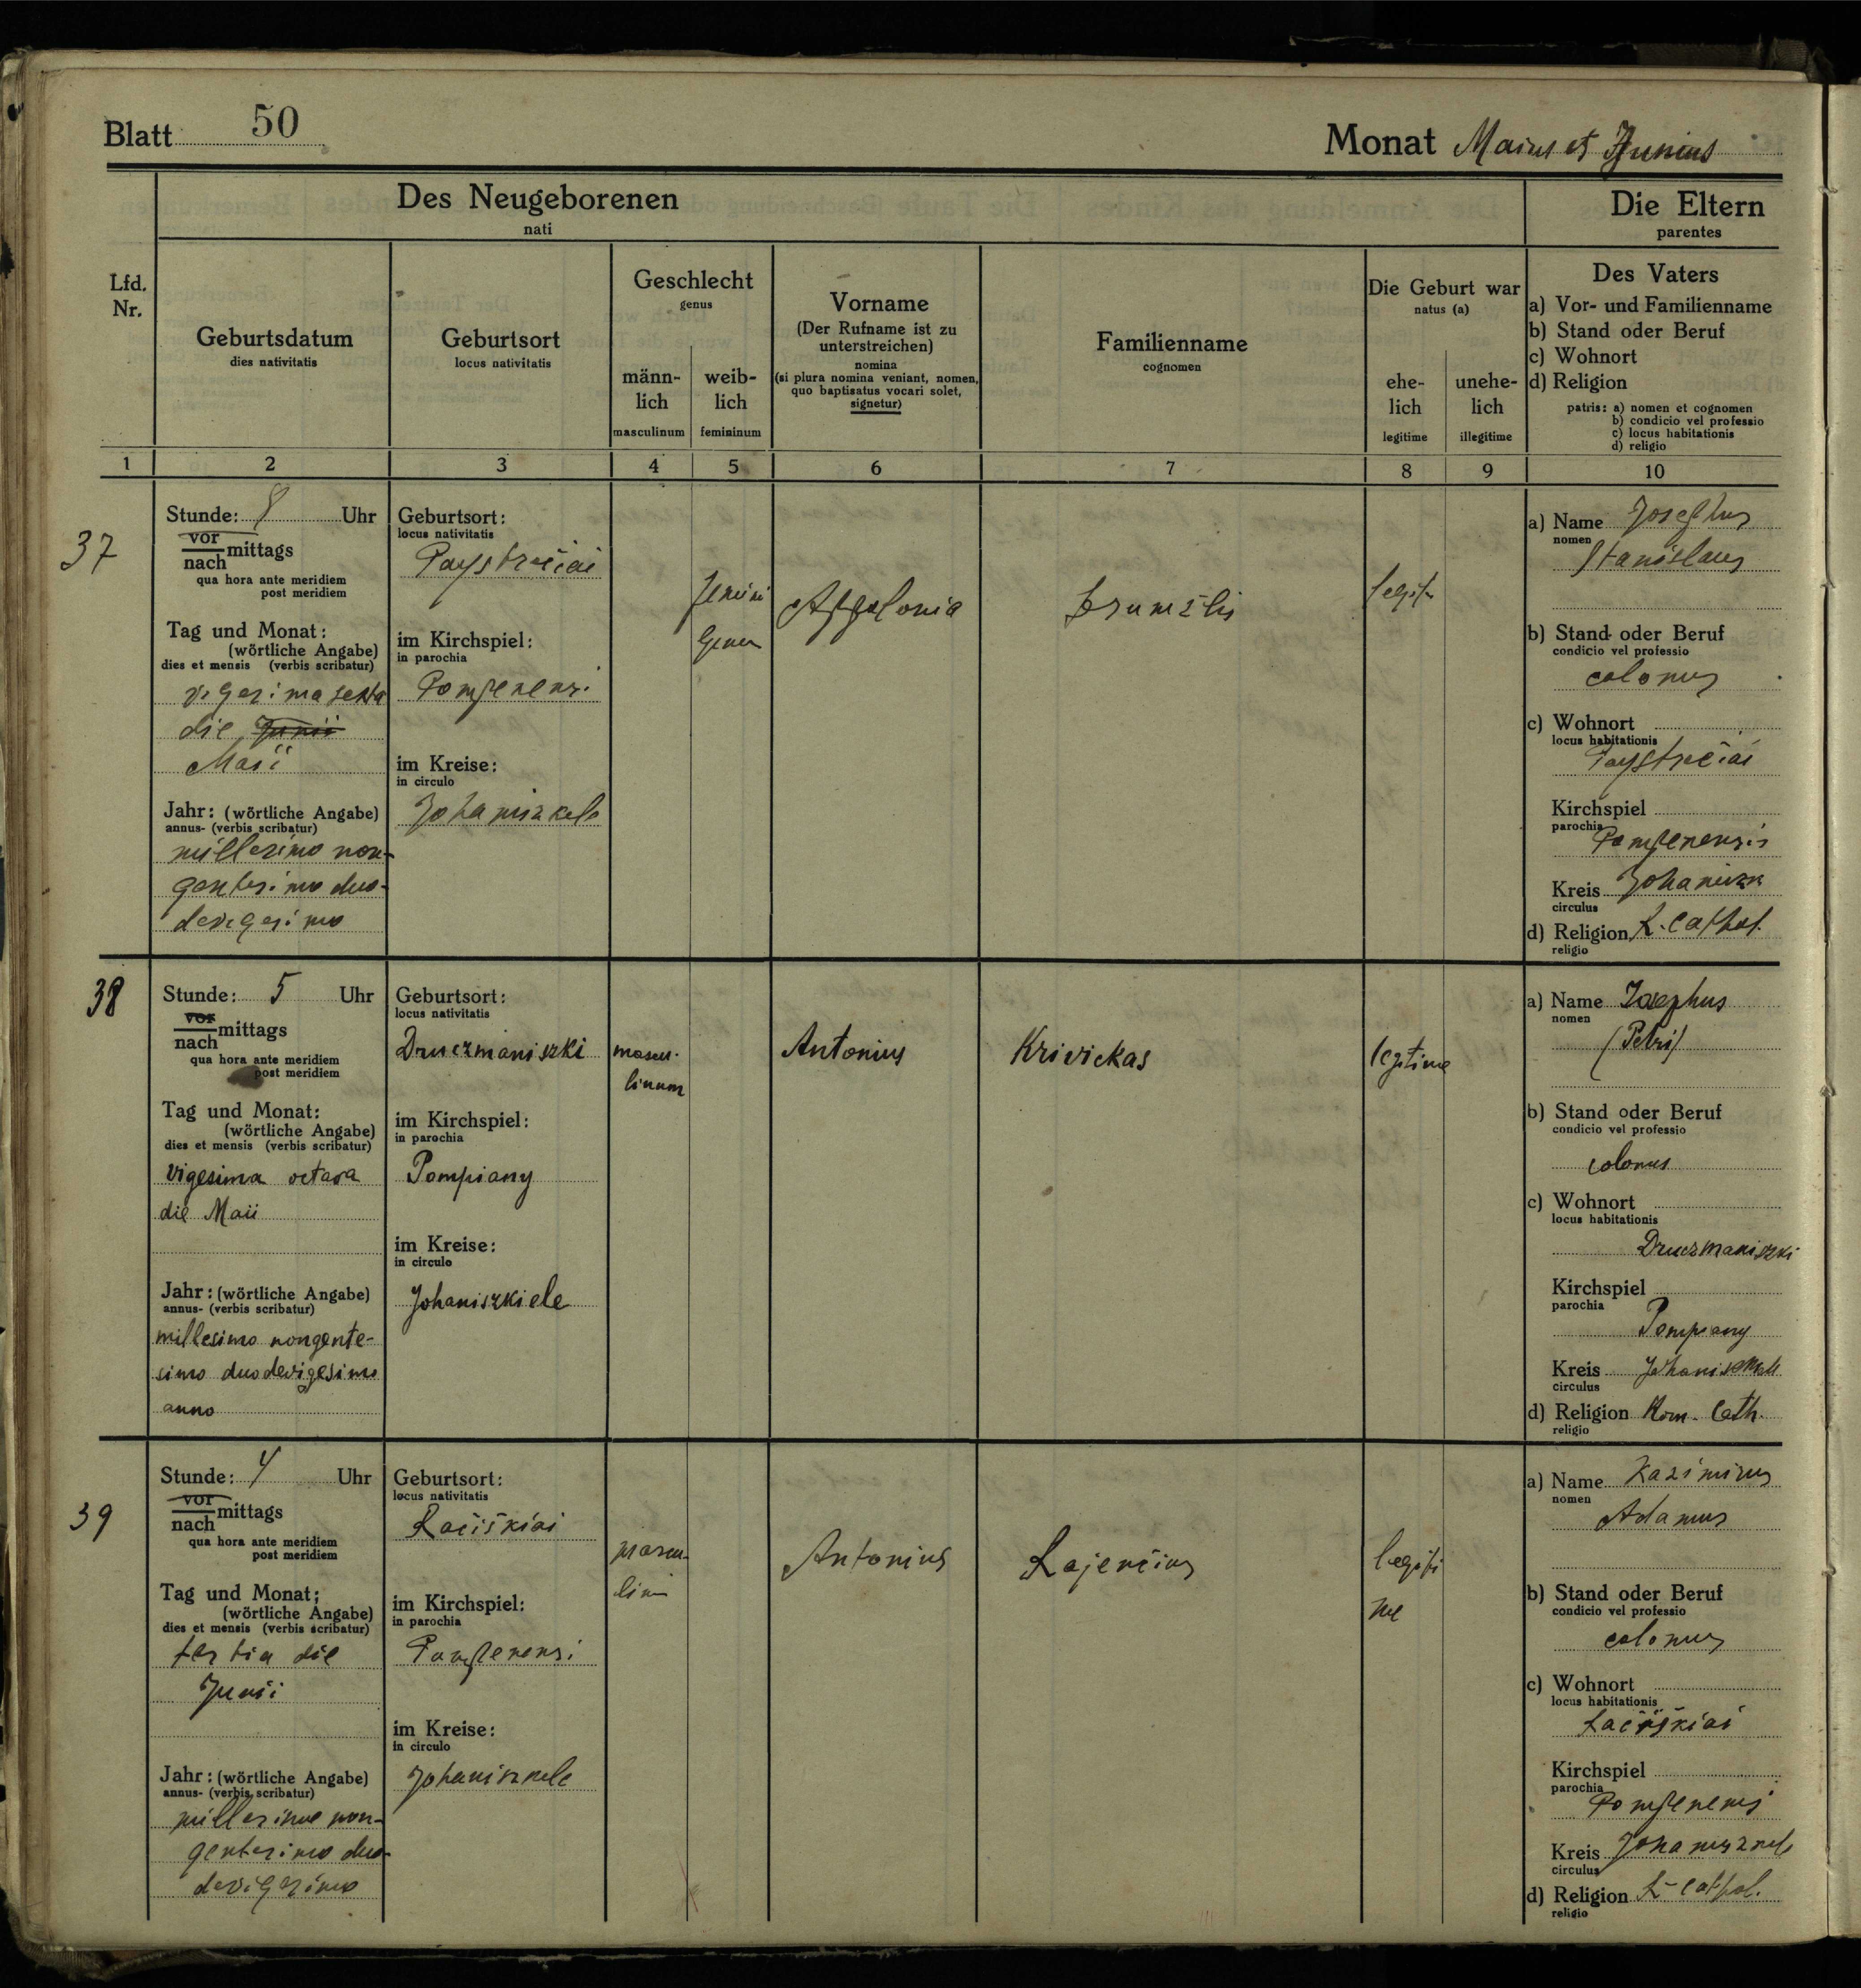 Blatt 50
Monat Maius et Junius
Des Neugeborenen
nati
Die Eltern
parentes
Lfd.
Nr.
Geburtsdatum
dies nativitatis
Geburtsort
locus nativitatis
Geschlecht
genus
männ-
lich
masculinum
weib-
lich
femininum
Vorname
(Der Rufname ist zu
unterstreichen)
nomina
(si plura nomina veniant, nomen,
quo baptisatus vocari solet,
signetur)
Familienname
cognomen
Die Geburt war
natus (a)
ehe-
lich
legitime
unehe-
lich
illegitime
Des Vaters
a) Vor- und Familienname
b) Stand oder Beruf
c) Wohnort
d) Religion
patris: a) nomen et cognomen
b) condicio vel professio
c) locus habitationis
d) religio
1 2 3 4 5 6 7 8 9 10
37
Stunde: 8 Uhr
vor
nach mittags
qua hora ante meridiem
post meridiem
Tag und Monat:
(wörtliche Angabe)
dies et mensis (verbis scribatur)
vigesima sexta
die Junii
Maii
Jahr: (wörtliche Angabe)
annus- (verbis scribatur)
millesimo non-
gentesimo duo-
devigesimo
Geburtsort:
locus nativitatis
Paystrečiai
im Kirchspiel:
in parochia
Pompenensi
im Kreise:
in circulo
Johaniszkele
femini
gener
Appolonia
legit
a) Name Josephus
nomen
Stanislaus
b) Stand oder Beruf
condicio vel professio
colonus
c) Wohnort
locus habitationis
Paystrečiai
Kirchspiel
parochia
Pompenensis
Kreis Johaniszk
circulus
d) Religion R. Cathol.
religio
38
Stunde: 5 Uhr
vor
nach mittags
qua hora ante meridiem
post meridiem
Tag und Monat:
(wörtliche Angabe)
dies et mensis (verbis scribatur)
vigesima octava
die Maii
Jahr: (wörtliche Angabe)
annus- (verbis scribatur)
millesimo nongente-
simo duodevigesimo
anno
Geburtsort:
locus nativitatis
Druczmaniszki
im Kirchspiel:
in parochia
Pompiany
im Kreise:
in circulo
Johaniszkiele
mascu-
linum
Antonius
Krivickas
legitime
a) Name Josephus
nomen
(Petri)
b) Stand oder Beruf
condicio vel professio
colonus
c) Wohnort
locus habitationis
Druczmaniszki
Kirchspiel
parochia
Pompiany
Kreis
circulus
d) Religion Rom. Cath.
religio
39
Stunde: 4 Uhr
vor
nach mittags
qua hora ante meridiem
post meridiem
Tag und Monat;
(wörtliche Angabe)
dies et mensis (verbis scribatur)
tertia die
Junii
Jahr: (wörtliche Angabe)
annus- (verbis scribatur)
millesimo non-
gentesimo duo-
devigesimo
Geburtsort:
locus nativitatis
Račiškiai
im Kirchspiel:
in parochia
Pompenensi
im Kreise:
in circulo
Johaniszkele
mascu-
lini
Antonius
legiti
me
a) Name Kazimirus
nomen
Adamus
b) Stand oder Beruf
condicio vel professio
colonus
c) Wohnort
locus habitationis
Račiškiai
Kirchspiel
parochia
Pompenensi
Kreis Johaniszkele
circulus
d) Religion R. Cathol.
religio